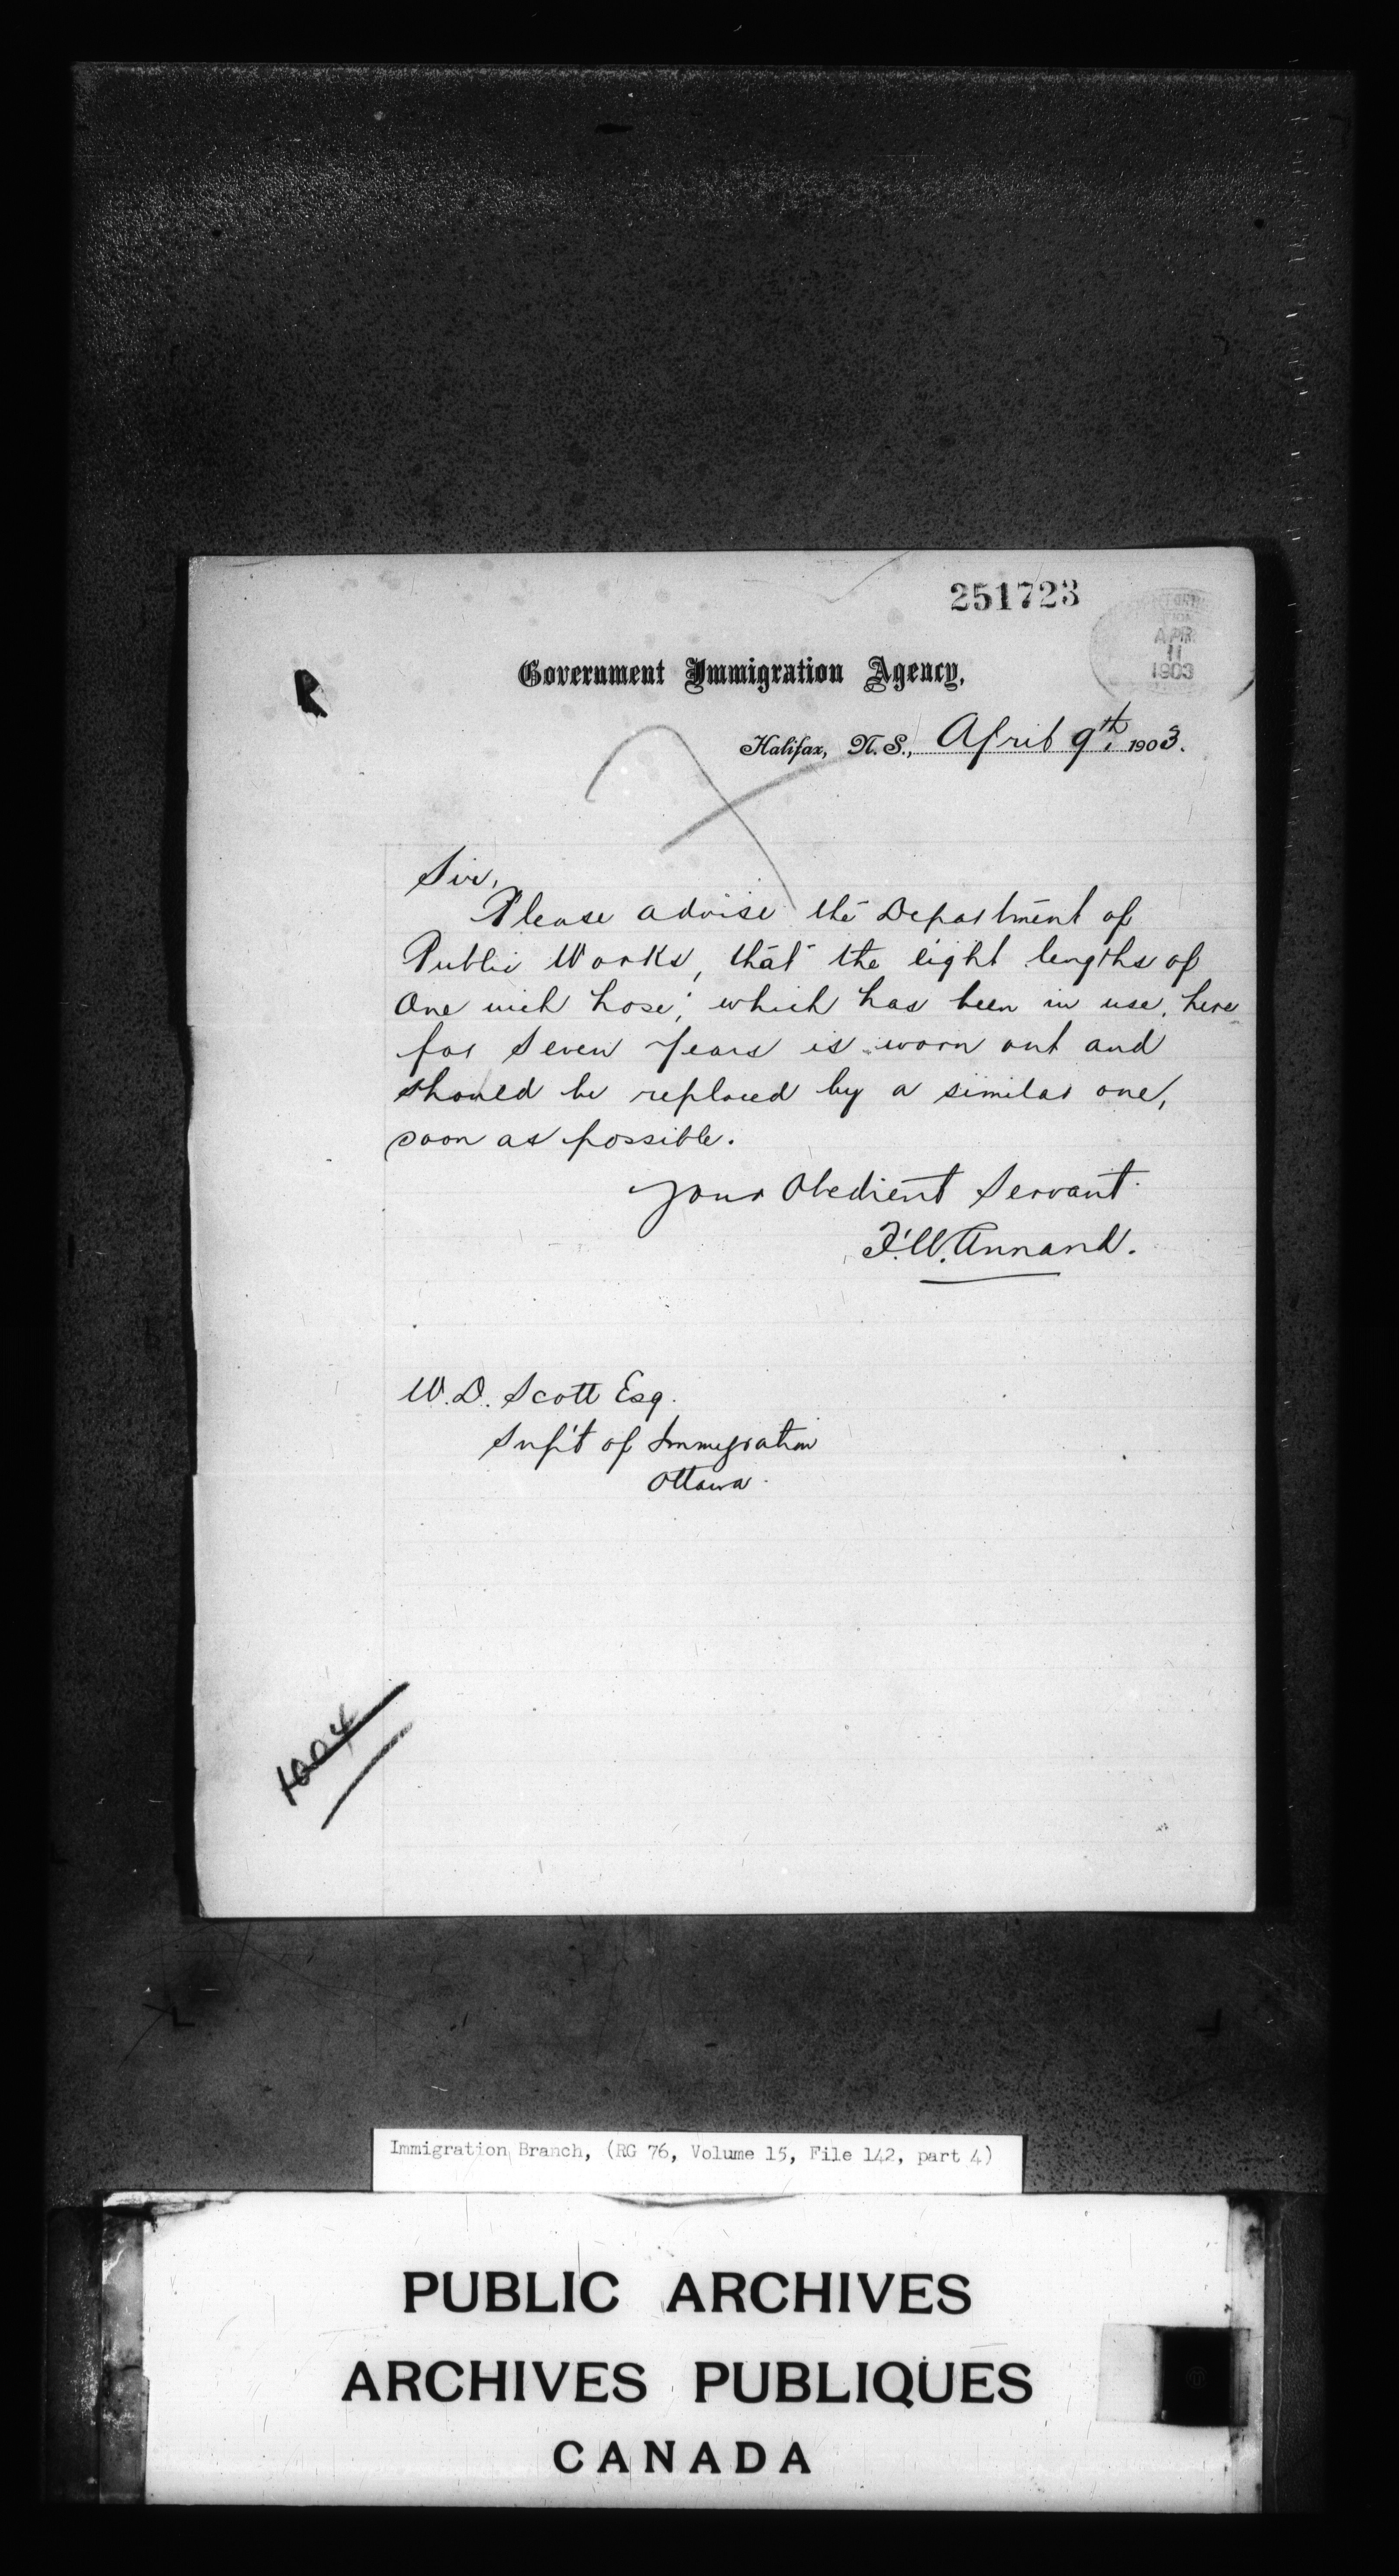 251723
APR
11
1903
R
Government Immigration Agency,
Halifax, N. S., April 9th, 1903.
Sir,
Please advise the Department of
Public Works, that the eight lengths of
One inch hose; which has been in use, here
for Seven Years is worn out and
should be replaced by a similar one,
soon as possible.
Your Obedient Servant
F.W. Annand.
W.D. Scott Esq.
Sup't of Immigration
Ottawa.
1004
Immigration Branch, (RG 76, Volume 15, File 142, part 4)
PUBLIC ARCHIVES
ARCHIVES PUBLIQUES
CANADA